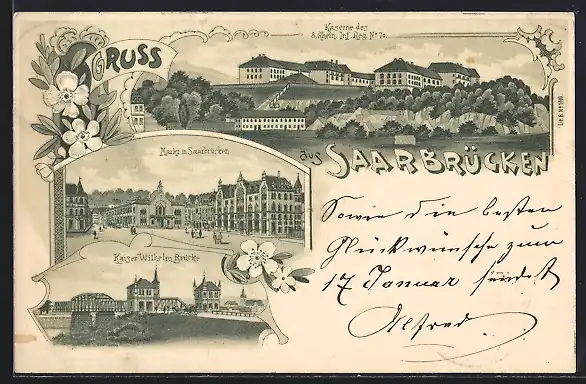 GRUSS
Kaserne des
8. Rhein. Inf. Reg. Nº 70.
Markt in Saarbrücken
aus SAARBRÜCKEN
Kaiser Wilhelm Brücke
Sowie die besten
Glückwünsche zum
17 Januar sendet
Alfred